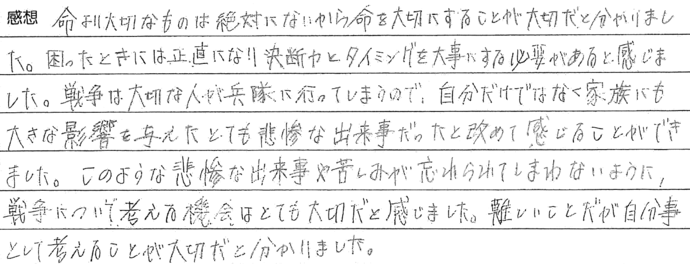 感想 命より大切なものは絶対にないから命を大切にすることが大切だと分かりまし
た。困ったときには正直になり決断力とタイミングを大事にする必要があると感じま
した。戦争は大切な人が兵隊に行ってしまうので、自分だけではなく家族にも
大きな影響を与えたとても悲惨な出来事だったと改めて感じることができ
ました。このような悲惨な出来事や苦しみが忘れられてしまわないように、
戦争について考える機会はとても大切だと感じました。難しいことだが自分事
として考えることが大切だと分かりました。